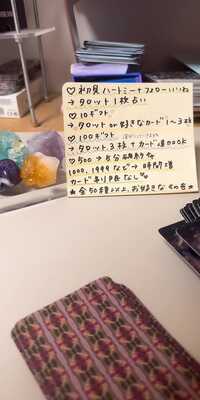 ♡ 初見ハートミー+フォローいいね
→ タロット1枚占い
♡ 10ギフト
→ タロット or 好きなカード 1~3枚
♡ 100ギフト
→ タロット3枚+カード1回OK
♡ 500 → 5分
1000, 1999など → 時間増
カード制限なし
★全50種以上、お好きなもの★